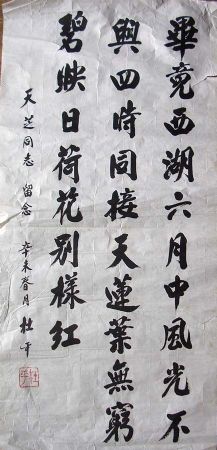 畢竟西湖六月中風光不
與四時同接天蓮葉無窮
碧映日荷花别樣紅
天芝同志 留念 辛未春月 杜平